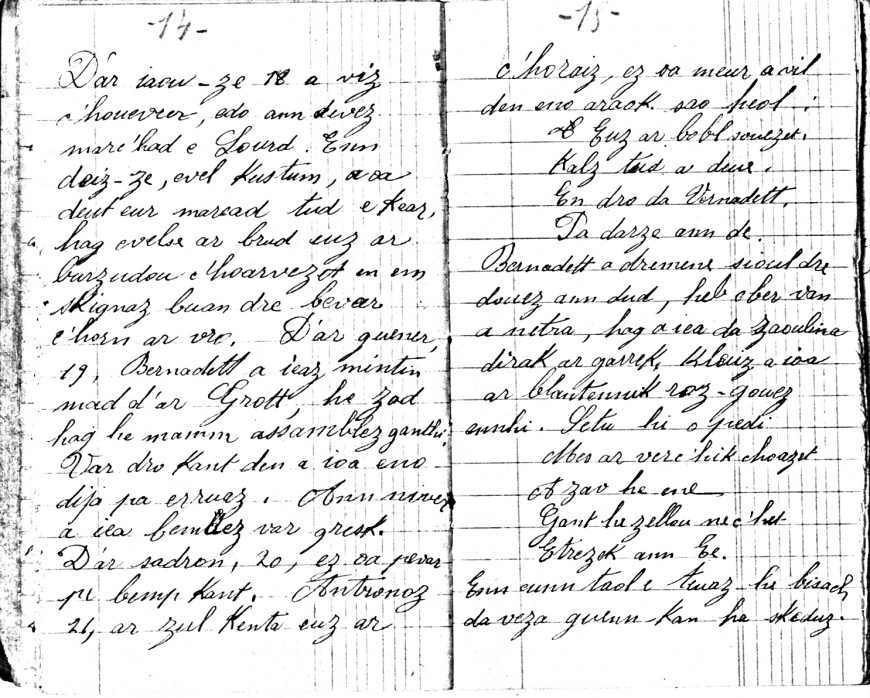 -14-
D'ar iaou-ze 18 a viz
c'houevrer, edo ann devez
marc'had e Lourd. Enn
deiz-ze, evel Kustum, a oa
deut eur maread tud e Kear,
hag evelse ar brud euz ar
burzudou c'hoarvezet en em
skignaz buan dre bevar
c'horn ar vro. D'ar guener,
19, Bernadett a ieaz mintin
mad d'ar Grott, he zad
hag he mamm assamblez ganthi.
Var dro Kant den a ioa eno
dija pa erruaz. Ann niver
a iea bemdez var gresk.
D'ar sadron, 20, ez oa pevar
pe bemp Kant. Antronoz
21, ar zul Kenta euz ar
-15-
c'horaiz, ez oa meur a vil
den eno araok sao heol:
Euz ar bobl souezet.
Kalz tud a deue.
En dro da Vernadett.
Pa darze ann de.
Bernadett a dremene sioul dre
douez ann dud, heb ober van
a netra, hag a iea da zaoulina
dirak ar garrek, Kleuz a ioa
ar blantennik roz-gouez
ennhi. Setu hi o pedi
Mes ar verc'hik choazet
A zav he ene
Gant he zellou nec'het
Etrezek ann Ee.
Enn eunn taol e teuaz he bisach
da veza guenn-kan ha skeduz.